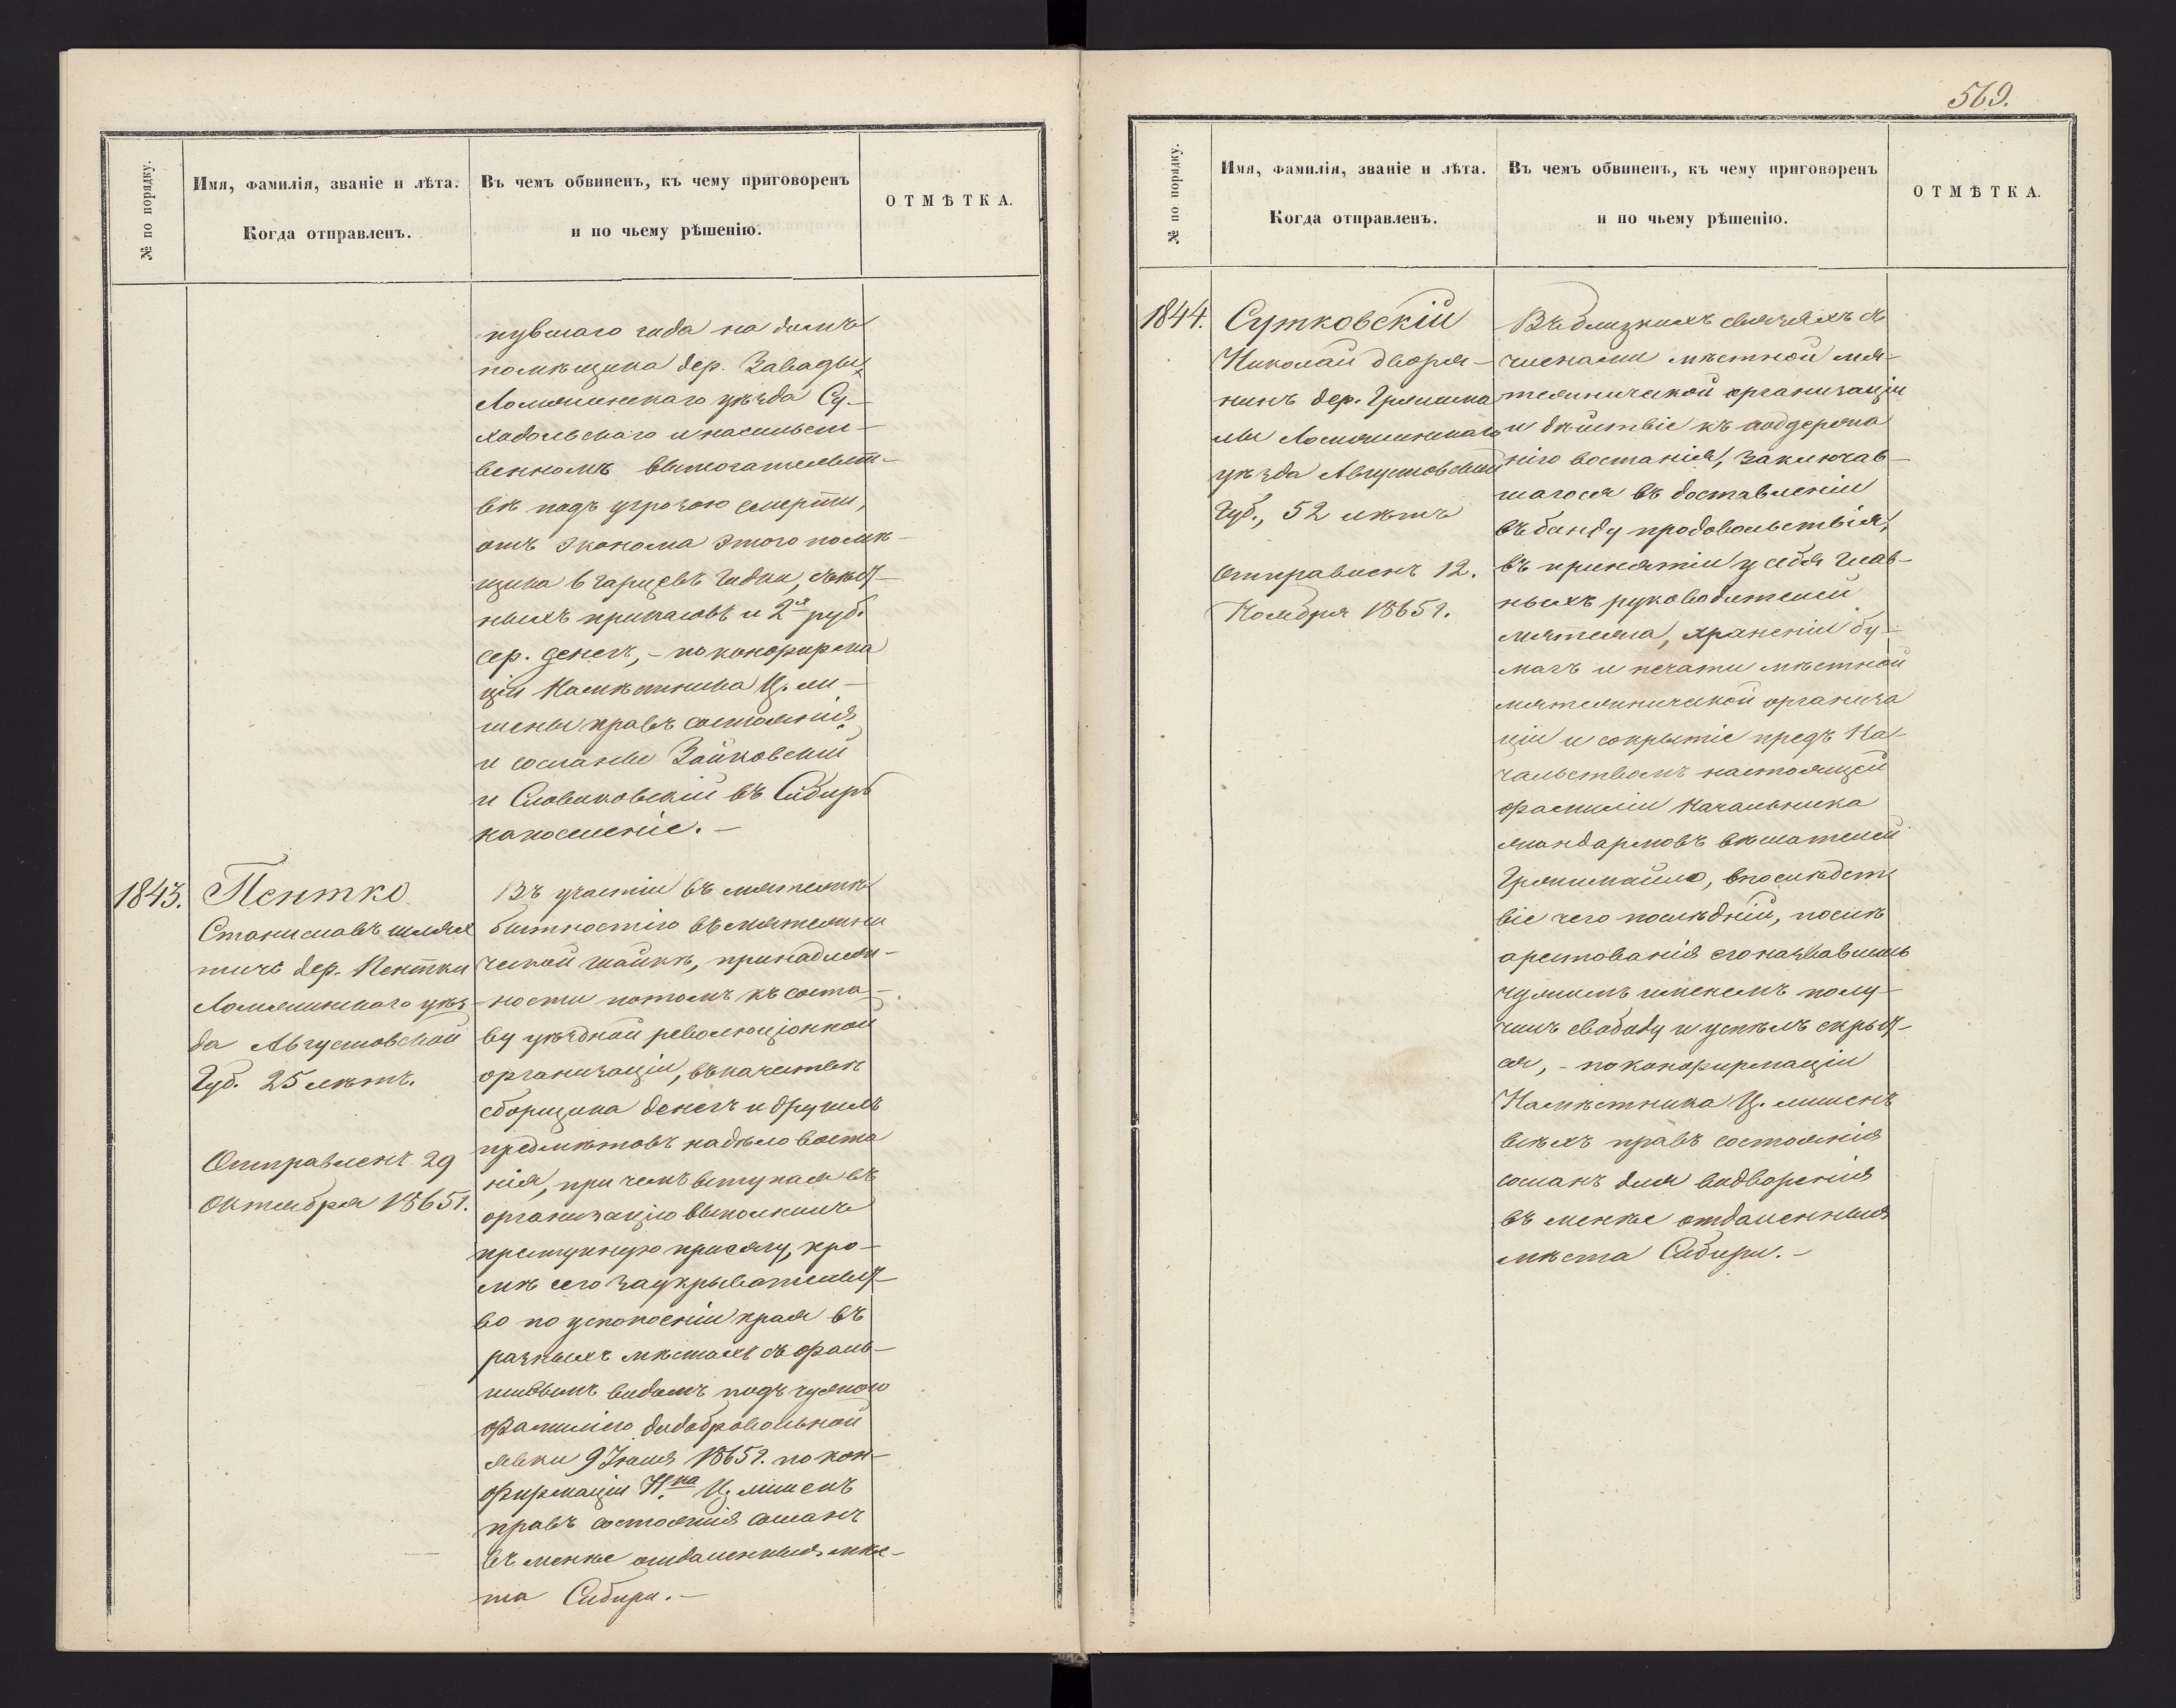 № по порядку.
Имя, фамилія, званіе и лѣта.
Когда отправленъ.
Въ чемъ обвиненъ, къ чему приговоренъ
и по чьему рѣшенію.
ОТМѢТКА.
нувшаго года на домъ
помѣщика дер. Завады,
Ломжинскаго уѣзда Су-
ходольскаго и насильст-
венномъ вымогательст-
вѣ подъ угрозою смерти,
отъ эконома этого помѣ-
щика 6 гарцевъ водки, съѣст-
ныхъ припасовъ и 2 руб.
сер. денегъ, - по конфирма
ціи Намѣстника Ц. ли-
шены правъ состоянія
и сосланы Зайковскій
и Словиковскій въ Сибирь
на поселеніе. -
1843.
Пентко
Станиславъ шлях
тичъ дер. Пентки
Ломжинскаго уѣз-
да Августовской
Губ. 25 лѣтъ.
Отправленъ 29
Октября 1865 г.
Въ участіи въ мятежѣ
бытностію въ мятежни
ческой шайкѣ, принадлеж-
ности потомъ къ соста-
ву уѣздной революціонной
организаціи, въ качествѣ
сборщика денегъ и другихъ
предмѣтовъ на дѣло воста
нія, при чемъ вступая въ
организацію выполнилъ
преступную присягу, кро-
мѣ сего за укрывательст-
во по успокоеніи края въ
разныхъ мѣстахъ съ фаль-
шивымъ видомъ подъ чужою
фамиліею до добровольной
явки 9 Іюля 1865 г. по кон-
фирмаціи Н.ка Ц. лишенъ
правъ состоянія сосланъ
въ менѣе отдаленныя мѣс-
та Сибири. -
569.
№ по порядку.
Имя, фамилія, званіе и лѣта.
Когда отправленъ.
Въ чемъ обвиненъ, къ чему приговоренъ
и по чьему рѣшенію.
ОТМѢТКА.
1844.
Сутковскій
Николай дворя-
нинъ дер.
Ломжинскаго
уѣзда Августовской
Губ., 52 лѣтъ
Отправленъ 12.
Ноября 1865 г.
Въ близкихъ связяхъ съ
членами мѣстной мя-
тежнической организаціи
и дѣйствіе къ поддержа
нію востанія, заключав-
шагося въ доставленіи
въ банду продовольствія,
въ принятіи у себя глав-
ныхъ руководителей
мятежа, храненіи бу-
магъ и печати мѣстной
мятежнической организа
ціи и сокрытіе предъ На-
чальствомъ настоящей
фамиліи Начальника
жандармовъ вѣшателей
впослѣдст
віе чего послѣдній, послѣ
арестованія его назвавшись
чужимъ именемъ полу-
чилъ свободу и успѣлъ скрыт-
ся, - по конфирмаціи
Намѣстника Ц. лишенъ
всѣхъ правъ состоянія
сосланъ для водворенія
въ менѣе отдаленныя
мѣста Сибири. -